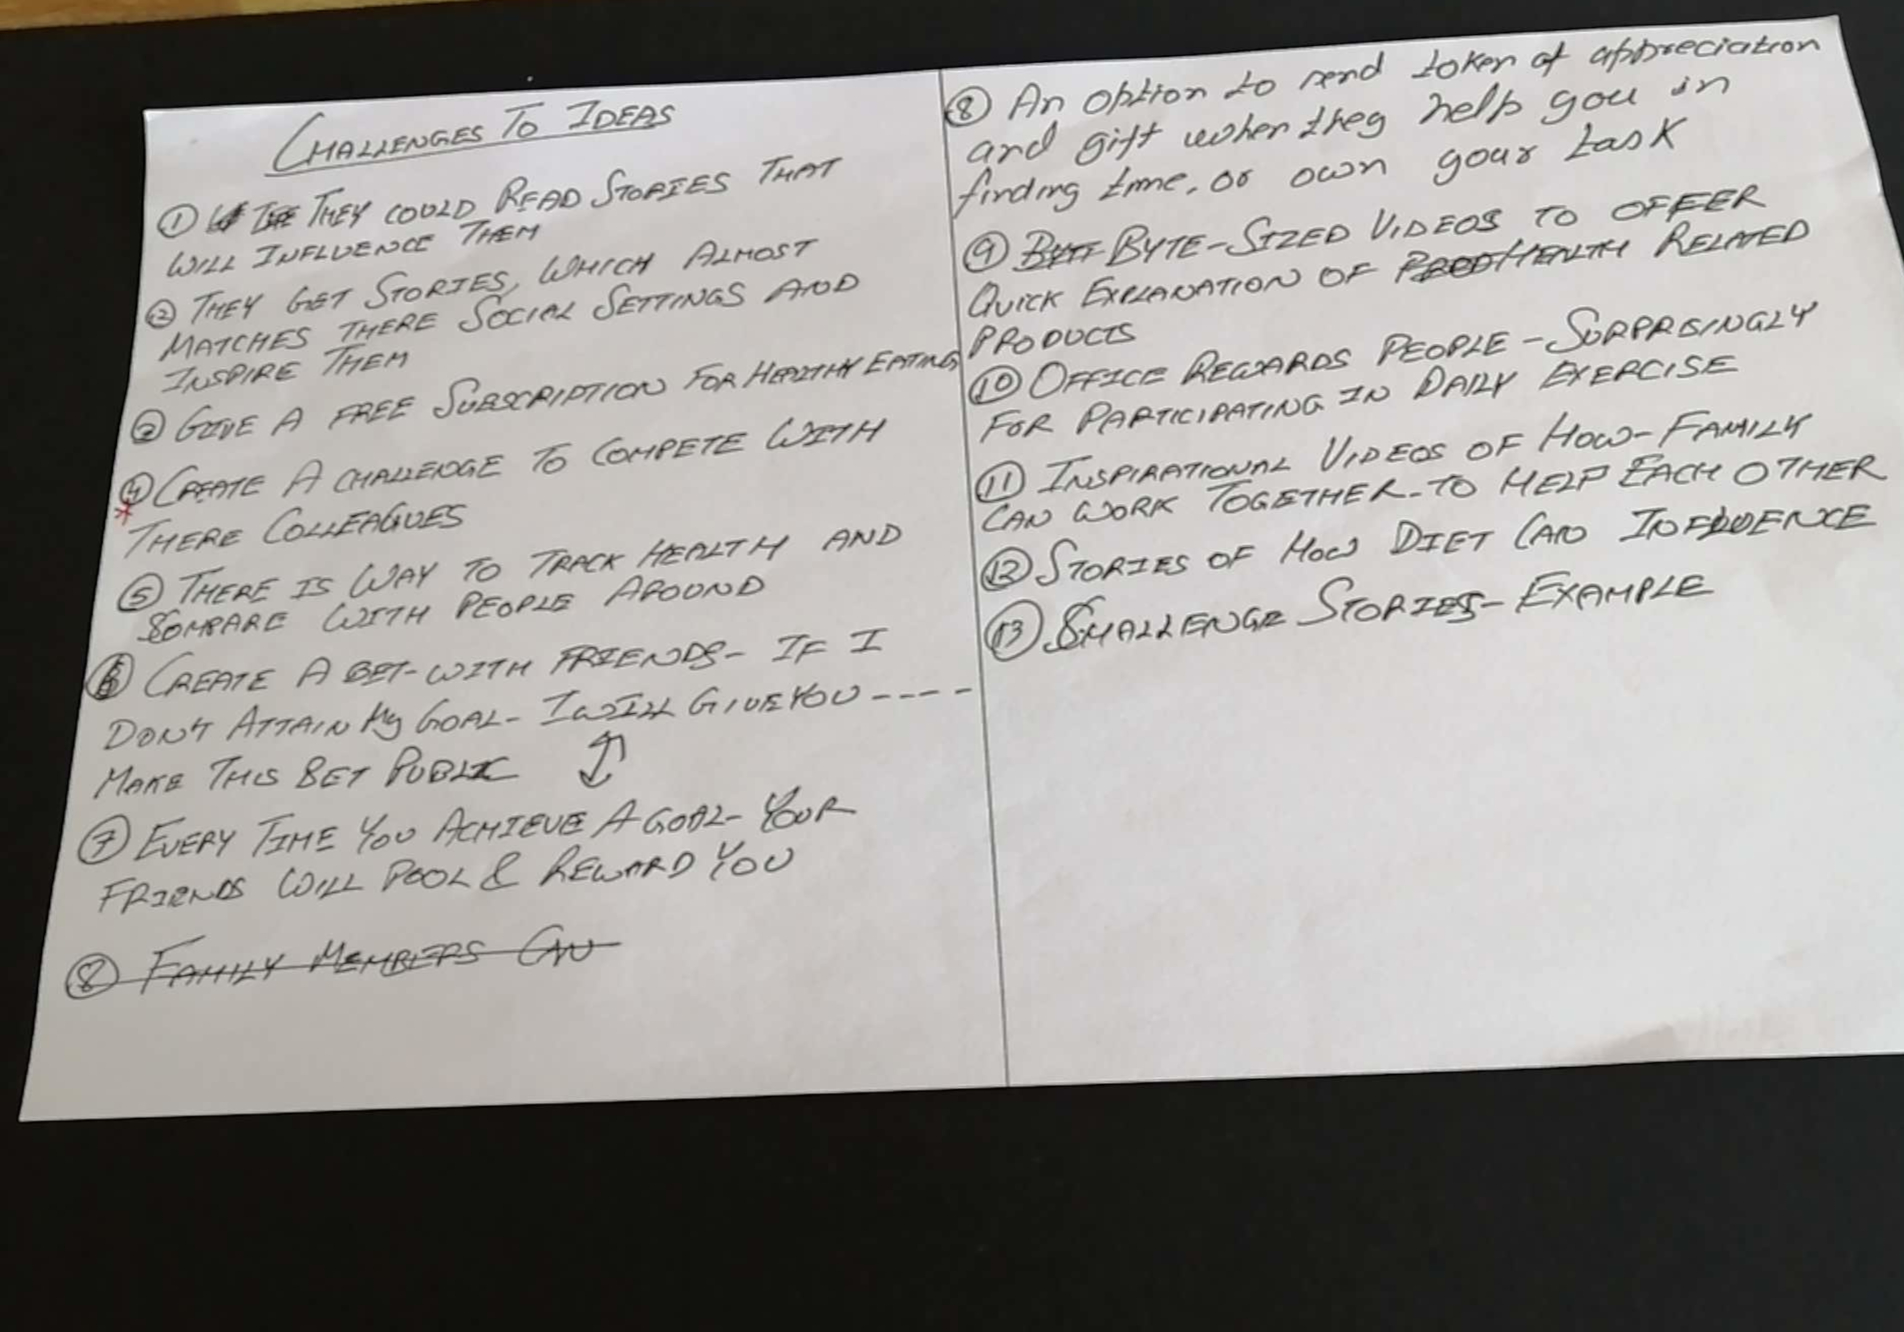 CHALLENGES TO IDEAS
① IF THEY COULD READ STORIES THAT
WILL INFLUENCE THEM
② THEY GET STORIES, WHICH ALMOST
MATCHES THERE SOCIAL SETTINGS AND
INSPIRE THEM
③ GIVE A FREE SUBSCRIPTION FOR HEALTHY EATING
④ CREATE A CHALLENGE TO COMPETE WITH
* THERE COLLEAGUES
⑤ THERE IS WAY TO TRACK HEALTH AND
COMPARE WITH PEOPLE AROUND
⑥ CREATE A BET-WITH FRIENDS- IF I
DON'T ATTAIN My GOAL- I WILL GIVE YOU ----
MAKE THIS BET PUBLIC
⑦ EVERY TIME YOU ACHIEVE A GOAL- YOUR
FRIENDS WILL POOL & REWARD YOU
⑧ FAMILY MEMBERS CAN
⑧ An option to send token of appreciation
and gift when they help you in
finding time, or own your task
⑨ BYTE-SIZED VIDEOS TO OFFER
QUICK EXPLANATION OF HEALTH RELATED
PRODUCTS
⑩ OFFICE REWARDS PEOPLE - SURPRISINGLY
FOR PARTICIPATING IN DAILY EXERCISE
⑪ INSPIRATIONAL VIDEOS OF HOW- FAMILY
CAN WORK TOGETHER- TO HELP EACH OTHER
⑫ STORIES OF HOW DIET CAN INFLUENCE
⑬ CHALLENGE STORIES- EXAMPLE